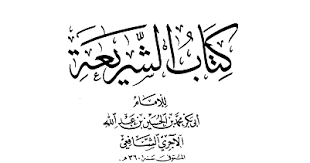 كتاب الشريعة
للإمام
أبي بكر محمد بن الحسين بن عبد الله
الآجري الشافعي
المتوفى سنة ٣٦٠ هـ